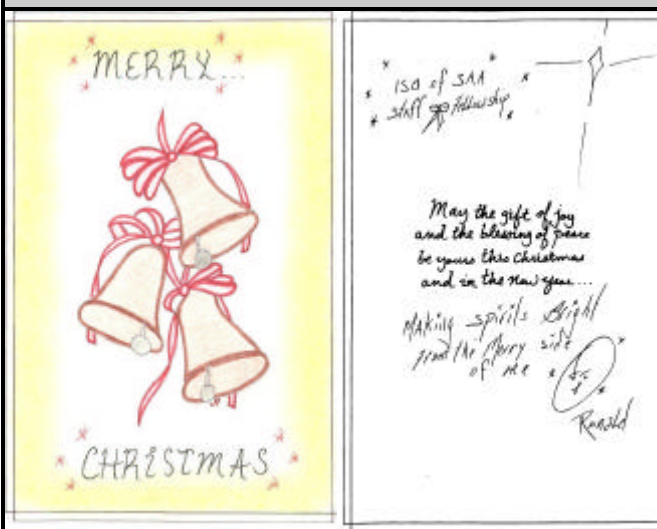 MERRY...
CHRISTMAS
ISO of SAA
Staff & Fellowship
May the gift of joy
and the blessing of peace
be yours this Christmas
and in the New Year...
Making spirits Bright
from the Merry side
of me
Ronald